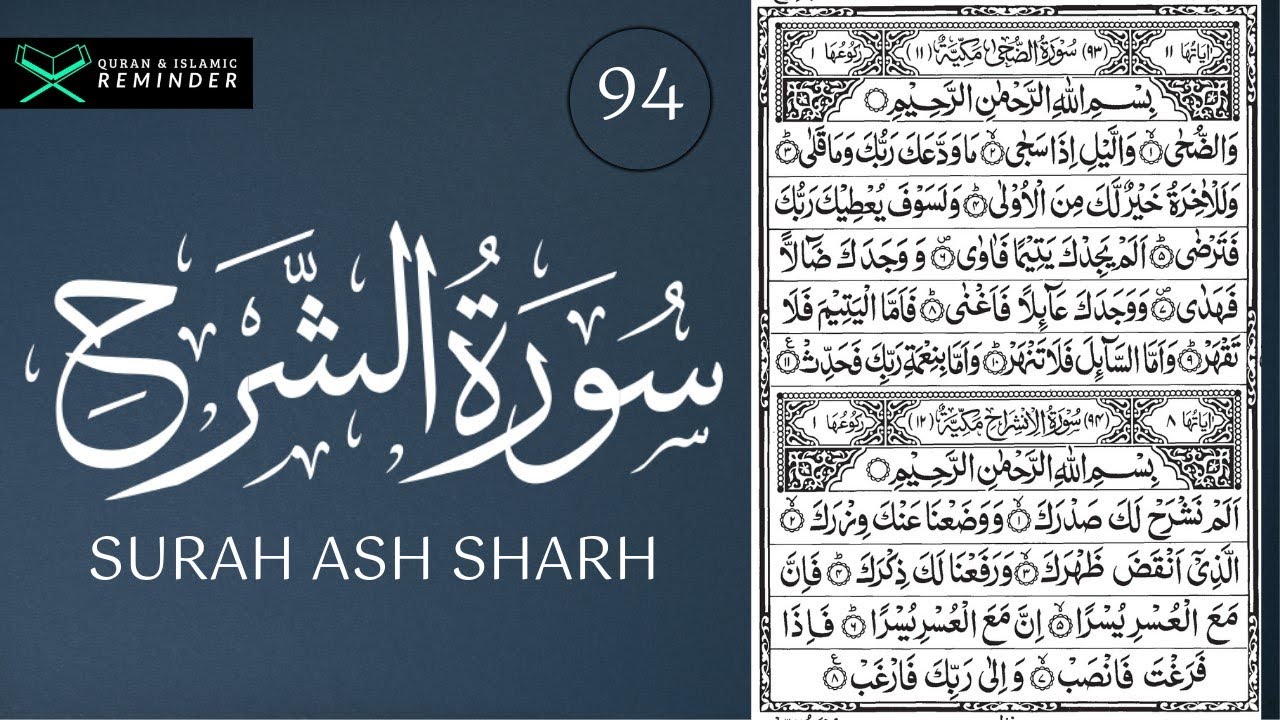 QURAN & ISLAMIC
REMINDER
94
سُورَةُ الشَّرْحِ
SURAH ASH SHARH
اٰيَاتُهَا ١١ (٩٣) سُوْرَةُ الضُّحٰى مَكِّيَّةٌ (١١) رُكُوْعُهَا ١
بِسْمِ اللّٰهِ الرَّحْمٰنِ الرَّحِيْمِ
وَالضُّحٰى ۙ‏﴿۱﴾ وَالَّيْلِ اِذَا سَجٰى ۙ‏﴿۲﴾ مَا وَدَّعَكَ رَبُّكَ وَمَا قَلٰى ؕ‏﴿۳﴾
وَلَلْاٰخِرَةُ خَيْرٌ لَّكَ مِنَ الْاُوْلٰى ؕ‏﴿۴﴾ وَلَسَوْفَ يُعْطِيْكَ رَبُّكَ
فَتَرْضٰى ؕ‏﴿۵﴾ اَلَمْ يَجِدْكَ يَتِيْمًا فَاٰوٰى ۪‏﴿۶﴾ وَوَجَدَكَ ضَآلًّا
فَهَدٰى ۪‏﴿۷﴾ وَوَجَدَكَ عَآئِلًا فَاَغْنٰى ؕ‏﴿۸﴾ فَاَمَّا الْيَتِيْمَ فَلَا
تَقْهَرْ ؕ‏﴿۹﴾ وَاَمَّا السَّآئِلَ فَلَا تَنْهَرْ ؕ‏﴿۱۰﴾ وَاَمَّا بِنِعْمَةِ رَبِّكَ فَحَدِّثْ ‏﴿۱۱﴾
اٰيَاتُهَا ٨ (٩٤) سُوْرَةُ الْاِنْشِرَاحِ مَكِّيَّةٌ (١٢) رُكُوْعُهَا ١
بِسْمِ اللّٰهِ الرَّحْمٰنِ الرَّحِيْمِ
اَلَمْ نَشْرَحْ لَكَ صَدْرَكَ ۙ‏﴿۱﴾ وَوَضَعْنَا عَنْكَ وِزْرَكَ ۙ‏﴿۲﴾
الَّذِىْۤ اَنْقَضَ ظَهْرَكَ ۙ‏﴿۳﴾ وَرَفَعْنَا لَكَ ذِكْرَكَ ؕ‏﴿۴﴾ فَاِنَّ
مَعَ الْعُسْرِ يُسْرًا ۙ‏﴿۵﴾ اِنَّ مَعَ الْعُسْرِ يُسْرًا ؕ‏﴿۶﴾ فَاِذَا
فَرَغْتَ فَانْصَبْ ۙ‏﴿۷﴾ وَاِلٰى رَبِّكَ فَارْغَبْ ‏﴿۸﴾